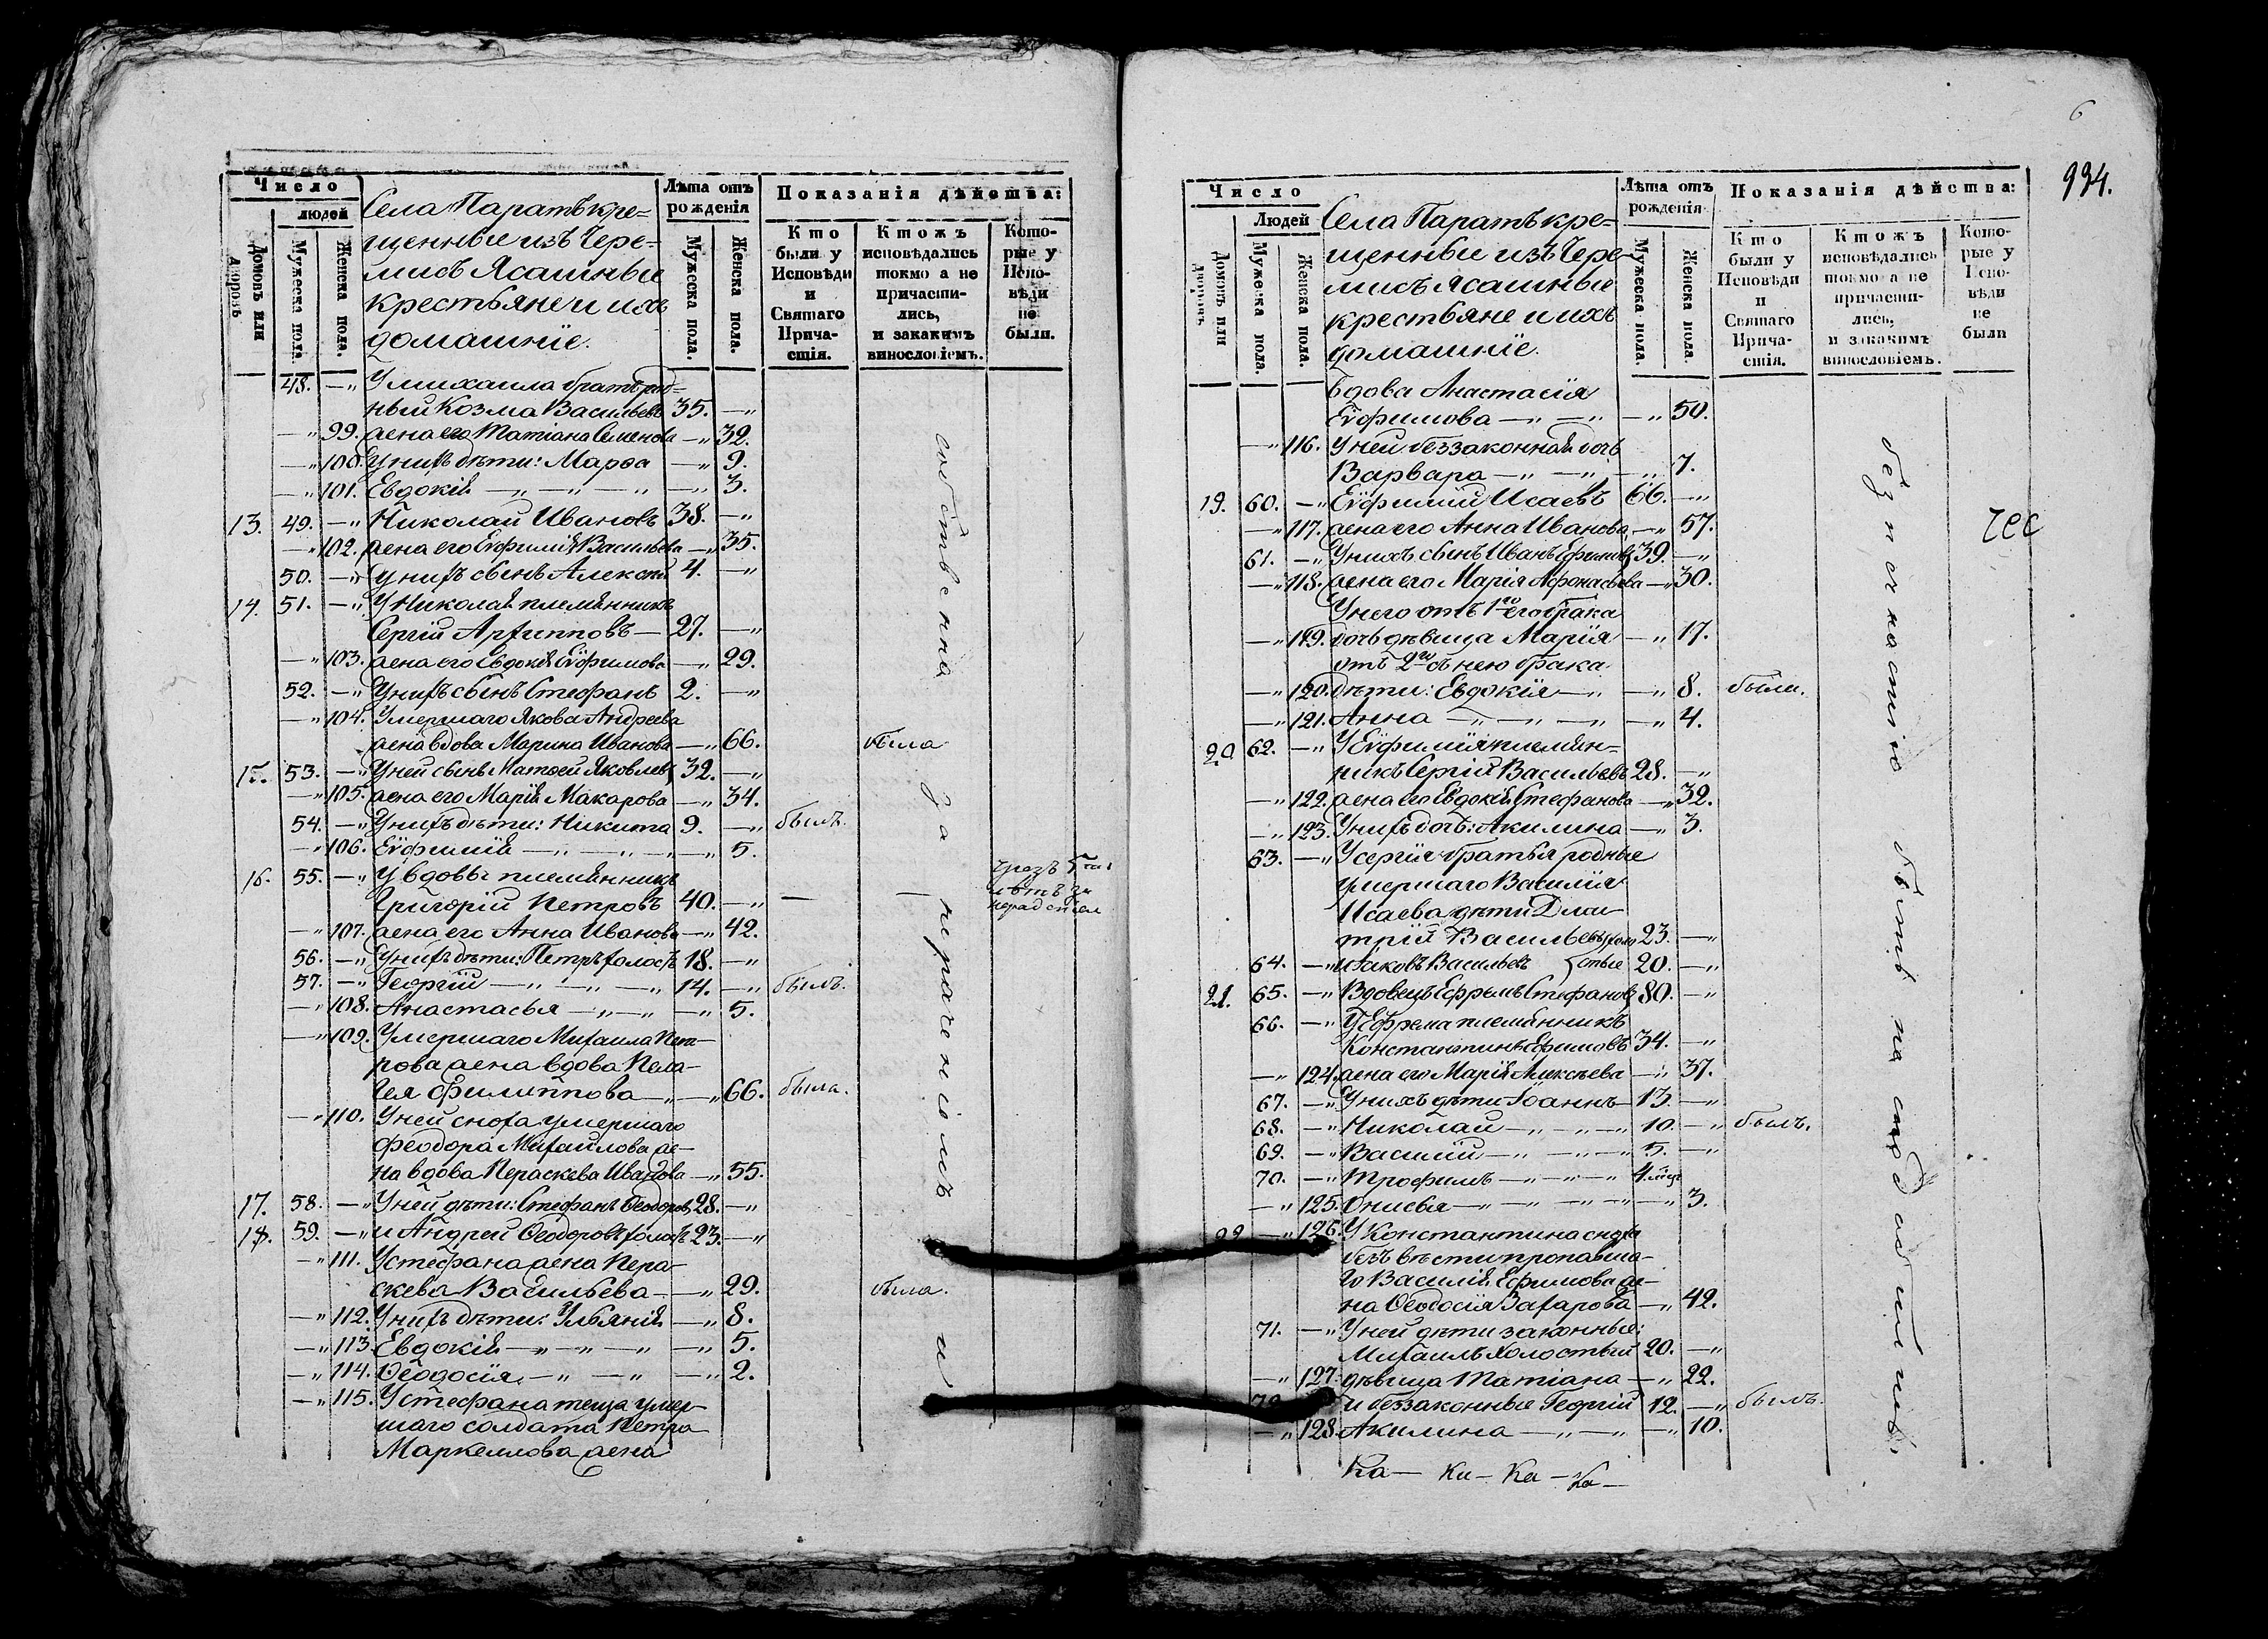 Число
людей
Домовъ или дворовъ
Мужеска пола.
Женска пола.
Села Паратъ кре-
щенные изъ Чере-
мисъ Ясашные
крестьяне и ихъ
домашніе.
Лѣта отъ
рожденія
Мужеска пола.
Женска пола.
Показанія дѣйства:
Кто
были у
Исповѣди
и
Святаго
Прича-
стія.
Ктожъ
исповѣдались
токмо а не
причасти-
лись,
и закакимъ
винословіемъ.
Кото-
рые у
Испо-
вѣди
не
были.
48. —„ У михаила братъ род-
ный Козма Васильевъ 35. —„
—„ 99. жена его Татіана Семенова —„ 32.
—„ 100. у нихъ дѣти: Марѳа —„ 9.
—„ 101. Евдокія —„ —„ —„ —„ 3.
13. 49. —„ Николай Ивановъ 38. —„
—„ 102. жена его Еѵфимія Васильева —„ 35.
50. —„ у нихъ сынъ Алексѣй 4. —„
14. 51. —„ У Николая племянникъ
Сергій Архипповъ — 27. —„
—„ 103. жена его Евдокія Еѵфимова —„ 29.
52. —„ У нихъ сынъ Стефанъ 2. —„
—„ 104. Умершаго Якова Андреева
жена вдова Марина Иванова —„ 66. была
15. 53. —„ У ней сынъ Матѳей Яковлевъ 32. —„
—„ 105. жена его Марія Макарова —„ 34.
54. —„ У нихъ дѣти: Никита 9. —„ былъ.
—„ 106. Еѵфимія —„ —„ —„ —„ 5.
16. 55. —„ У вдовы племянникъ
Григорій Петровъ 40. —„ —
—„ 107. жена его Анна Иванова —„ 42.
56. —„ У нихъ дѣти: Петръ холостъ 18. —„
57. —„ Георгій —„ —„ —„ 14. —„ былъ.
—„ 108. Анастасья —„ —„ —„ 5.
—„ 109. Умершаго Михаила Пет-
рова жена вдова Пела-
гея Филиппова —„ —„ 66. была.
—„ 110. У ней сноха умершаго
Феодора Михайлова же-
на вдова Пераскева Иванова —„ 55.
17. 58. —„ У ней дѣти: Стефанъ Ѳеодоровъ 28. —„
18. 59. —„ и Андрей Ѳеодоровъ холостъ 23. —„
—„ 111. У стефана жена Пера-
скева Васильева —„ 29. была.
—„ 112. У нихъ дѣти: Ульянія —„ 8.
—„ 113. Евдокія —„ —„ —„ —„ 5.
—„ 114. Ѳеодосія —„ —„ —„ 2.
—„ 115. У стефана теща умер-
шаго солдата Петра
Маркеллова жена
чрезъ
лѣтъ за
собственна
за
и
6
994.
Число
Людей
Домовъ или дворовъ
Мужеска пола.
Женска пола.
Села Паратъ кре-
щенные изъ Чере-
мисъ Ясашные
крестьяне и ихъ
домашніе.
Лѣта отъ
рожденія
Мужеска пола.
Женска пола.
Показанія дѣйства:
Кто
были у
Исповѣди
и
Святаго
Прича-
стія.
Ктожъ
исповѣдались
токмо а не
причасти-
лись,
и закакимъ
винословіемъ.
Кото-
рые у
Испо-
вѣди
не
были
вдова Анастасія
Еѵфимова —„ —„ —„ 50.
—„ 116. у ней беззаконная дочь
Варвара —„ —„ —„ 7.
19. 60. —„ Еѵфимій Исаевъ 66. —„
—„ 117. жена его Анна Иванова —„ 57.
61. —„ У нихъ сынъ Иванъ Ефимовъ 39. —„
—„ 118. жена его Марія Афонасьева —„ 30.
У него отъ 1го его брака
—„ 119. дочь дѣвица Марія —„ 17.
отъ 2го съ нею брака
—„ 120. дѣти: Евдокія —„ —„ 8. были.
—„ 121. Анна —„ —„ —„ —„ 4.
20 62. —„ У Еѵфимія племян-
никъ Сергій Васильевъ 28. —„
—„ 122. жена его Евдокія Стефанова —„ 32.
—„ 123. У нихъ дочь: Акилина —„ 3.
63. —„ У сергія братья родные
умершаго Василія
Исаева дѣти Дми-
трій Васильевъ холо 23. —„
64. —„ Иаковъ Васильевъ стые 20. —„
21. 65. —„ Вдовецъ Ефремъ Стефановъ 80. —„
66. —„ У Ефрема племянникъ
Константинъ Ефимовъ 34. —„
—„ 124. жена его Марія Алексѣева —„ 37.
67. —„ У нихъ дѣти Іоаннъ — 13. —„
68. —„ Николай —„ —„ —„ 10. —„ былъ.
69. —„ Василій —„ —„ —„ 5. —„
70. —„ Трофимъ —„ —„ —„ 4. мѣся
—„ 125. Онисья —„ —„ —„ —„ —„ 3.
22 —„ 126. У Константина сноха
безъ вѣсти пропавша-
го Василія Ефимова же-
на Ѳеодосія Захарова —„ 42.
71. —„ У ней дѣти законные:
Михаилъ Холостый 20. —„
—„ 127. дѣвица Татіана —„ 22.
72 и беззаконные Георгій 12. —„ былъ.
—„ 128. Акилина —„ —„ —„ 10.